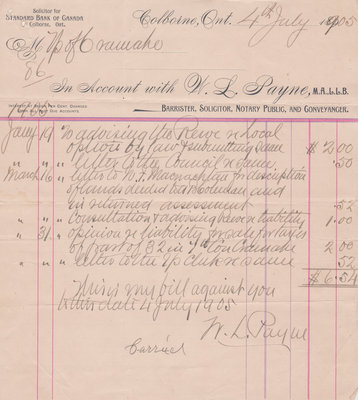 Solicitor for
STANDARD BANK OF CANADA
Colborne, Ont.
Colborne, Ont. 4th July 1905
M Tp of Cramahe
In Account with W. L. Payne, M.A.LL.B.
INTEREST AT SEVEN PER CENT. CHARGED
ON ALL PAST DUE ACCOUNTS
BARRISTER, SOLICITOR, NOTARY PUBLIC, AND CONVEYANCER.
Jany 19 To advising the Reeve re Local
option by law & submitting same $ 2.00
" " " letter to the Council re same .50
March 16 " letter to W. F. Macnachtan for description
of lands deeded to and
in returned assessment .52
" " " Consultation & advising Reeve re liability 1.00
" 31 " opinion re liability for sale for taxes
of part of 32 in 7th Con Cramahe 2.00
" " " letter to the Tp Clerk re same .52
$ 6.54
This is my bill against you
to this date 4 July 1905
W. L. Payne
Carried